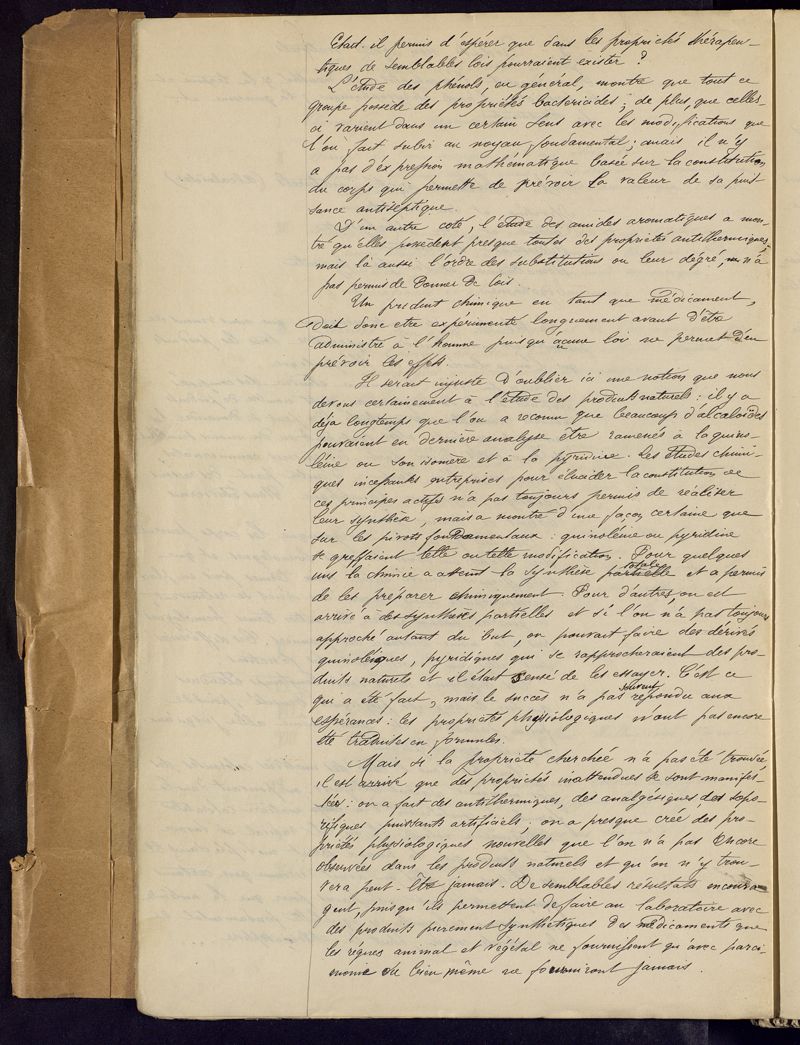 Etait-il permis d'espérer que dans les propriétés thérapeu-
tiques de semblables lois pourraient exister ?
L'étude des phénols, en général, montre que tout ce
groupe possède des propriétés bactéricides ; de plus, que celles-
ci varient dans un certain sens avec les modifications que
l'on fait subir au noyau fondamental ; mais il n'y
a pas d'expression mathématique basée sur la constitution
du corps qui permette de prévoir la valeur de sa puis-
sance antiseptique.
D'un autre coté, l'étude des amides aromatiques a mon-
tré qu'elles possèdent presque toutes des propriétés antithermiques,
mais là aussi l'ordre des substitutions ou leur dégré, n'a
pas permis de donner de lois.
Un produit chimique en tant que médicament,
doit donc etre expérimenté longuement avant d'être
administré à l'homme puisqu'aucune loi ne permet d'en
prévoir les effets.
Il serait injuste d'oublier ici une notion que nous
devons certainement à l'étude des produits naturels : il y a
déja longtemps que l'on a reconnu que beaucoup d'alcaloïdes
pouvaient en dernière analyse être ramenés à la quino-
léine ou son isomère et à la pyridine. Les études chimi-
ques incessantes entreprises pour élucider la constitution de
ces principes actifs n'a pas toujours permis de réaliser
leur synthèse, mais a montré d'une façon certaine que
sur les pivots fondamentaux : quinoléine ou pyridine
se greffaient telle ou telle modification. Pour quelques
uns la chimie a atteint la synthèse partielle totale et a permis
de les préparer chimiquement. Pour d'autres, on est
arrivé à des synthèses partielles et si l'on n'a pas toujours
approché autant du but, on pouvait faire des dérivés
quinoléiques, pyridiques qui se rapprocheraient des pro-
duits naturels et il était sensé de les essayer. C'est ce
qui a été fait, mais le succès n'a pas souvent répondu aux
espérances : les propriétés physiologiques n'ont pas encore
été traduites en formules.
Mais si la propriété cherchée n'a pas été trouvée,
il est arrivé que des propriétés inattendues se sont manifes-
tées : on a fait des antithermiques, des analgésiques des sopo-
rifiques puissants artificiels ; on a presque créé des pro-
priétés physiologiques nouvelles que l'on n'a pas encore
observées dans les produits naturels et qu'on n'y trou-
vera peut-être jamais. De semblables résultats encoura-
gent, puisqu'ils permettent de faire au laboratoire avec
des produits purement synthétiques des médicaments que
les règnes animal et végétal ne fournissent qu'avec parci-
monie ou bien même ne fourniront jamais.